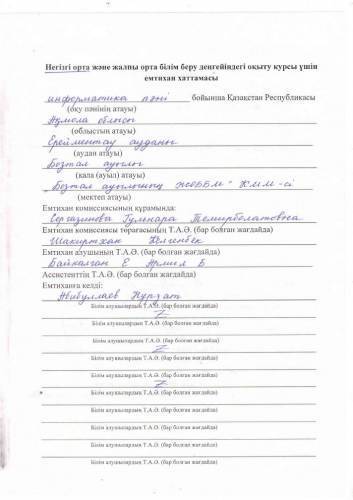 Негізгі орта және жалпы орта білім беру деңгейіндегі оқыту курсы үшін
емтихан хаттамасы
информатика пәні бойынша Қазақстан Республикасы
(оқу пәнінің атауы)
Ақмола облысы
(облыстың атауы)
Ерейментау ауданы
(аудан атауы)
Бозтал ауылы
(қала (ауыл) атауы)
Бозтал ауылының ЖОББМ" КММ-сі
(мектеп атауы)
Емтихан комиссиясының құрамында:
Сергазинова Гулнара Темирболатовна
Емтихан комиссиясы төрағасының Т.А.Ә. (бар болған жағдайда)
Шакиртхан
Емтихан алушының Т.А.Ә. (бар болған жағдайда)
Байкалган Е Б
Ассистенттің Т.А.Ә. (бар болған жағдайда)
Емтиханға келді:
Абибуллаев Нұрзат
Білім алушылардың Т.А.Ә. (бар болған жағдайда)
Z
Білім алушылардың Т.А.Ә. (бар болған жағдайда)
Білім алушылардың Т.А.Ә. (бар болған жағдайда)
Z
Білім алушылардың Т.А.Ә. (бар болған жағдайда)
Білім алушылардың Т.А.Ә. (бар болған жағдайда)
Z
Білім алушылардың Т.А.Ә. (бар болған жағдайда)
Білім алушылардың Т.А.Ә. (бар болған жағдайда)
Білім алушылардың Т.А.Ә. (бар болған жағдайда)
Білім алушылардың Т.А.Ә. (бар болған жағдайда)